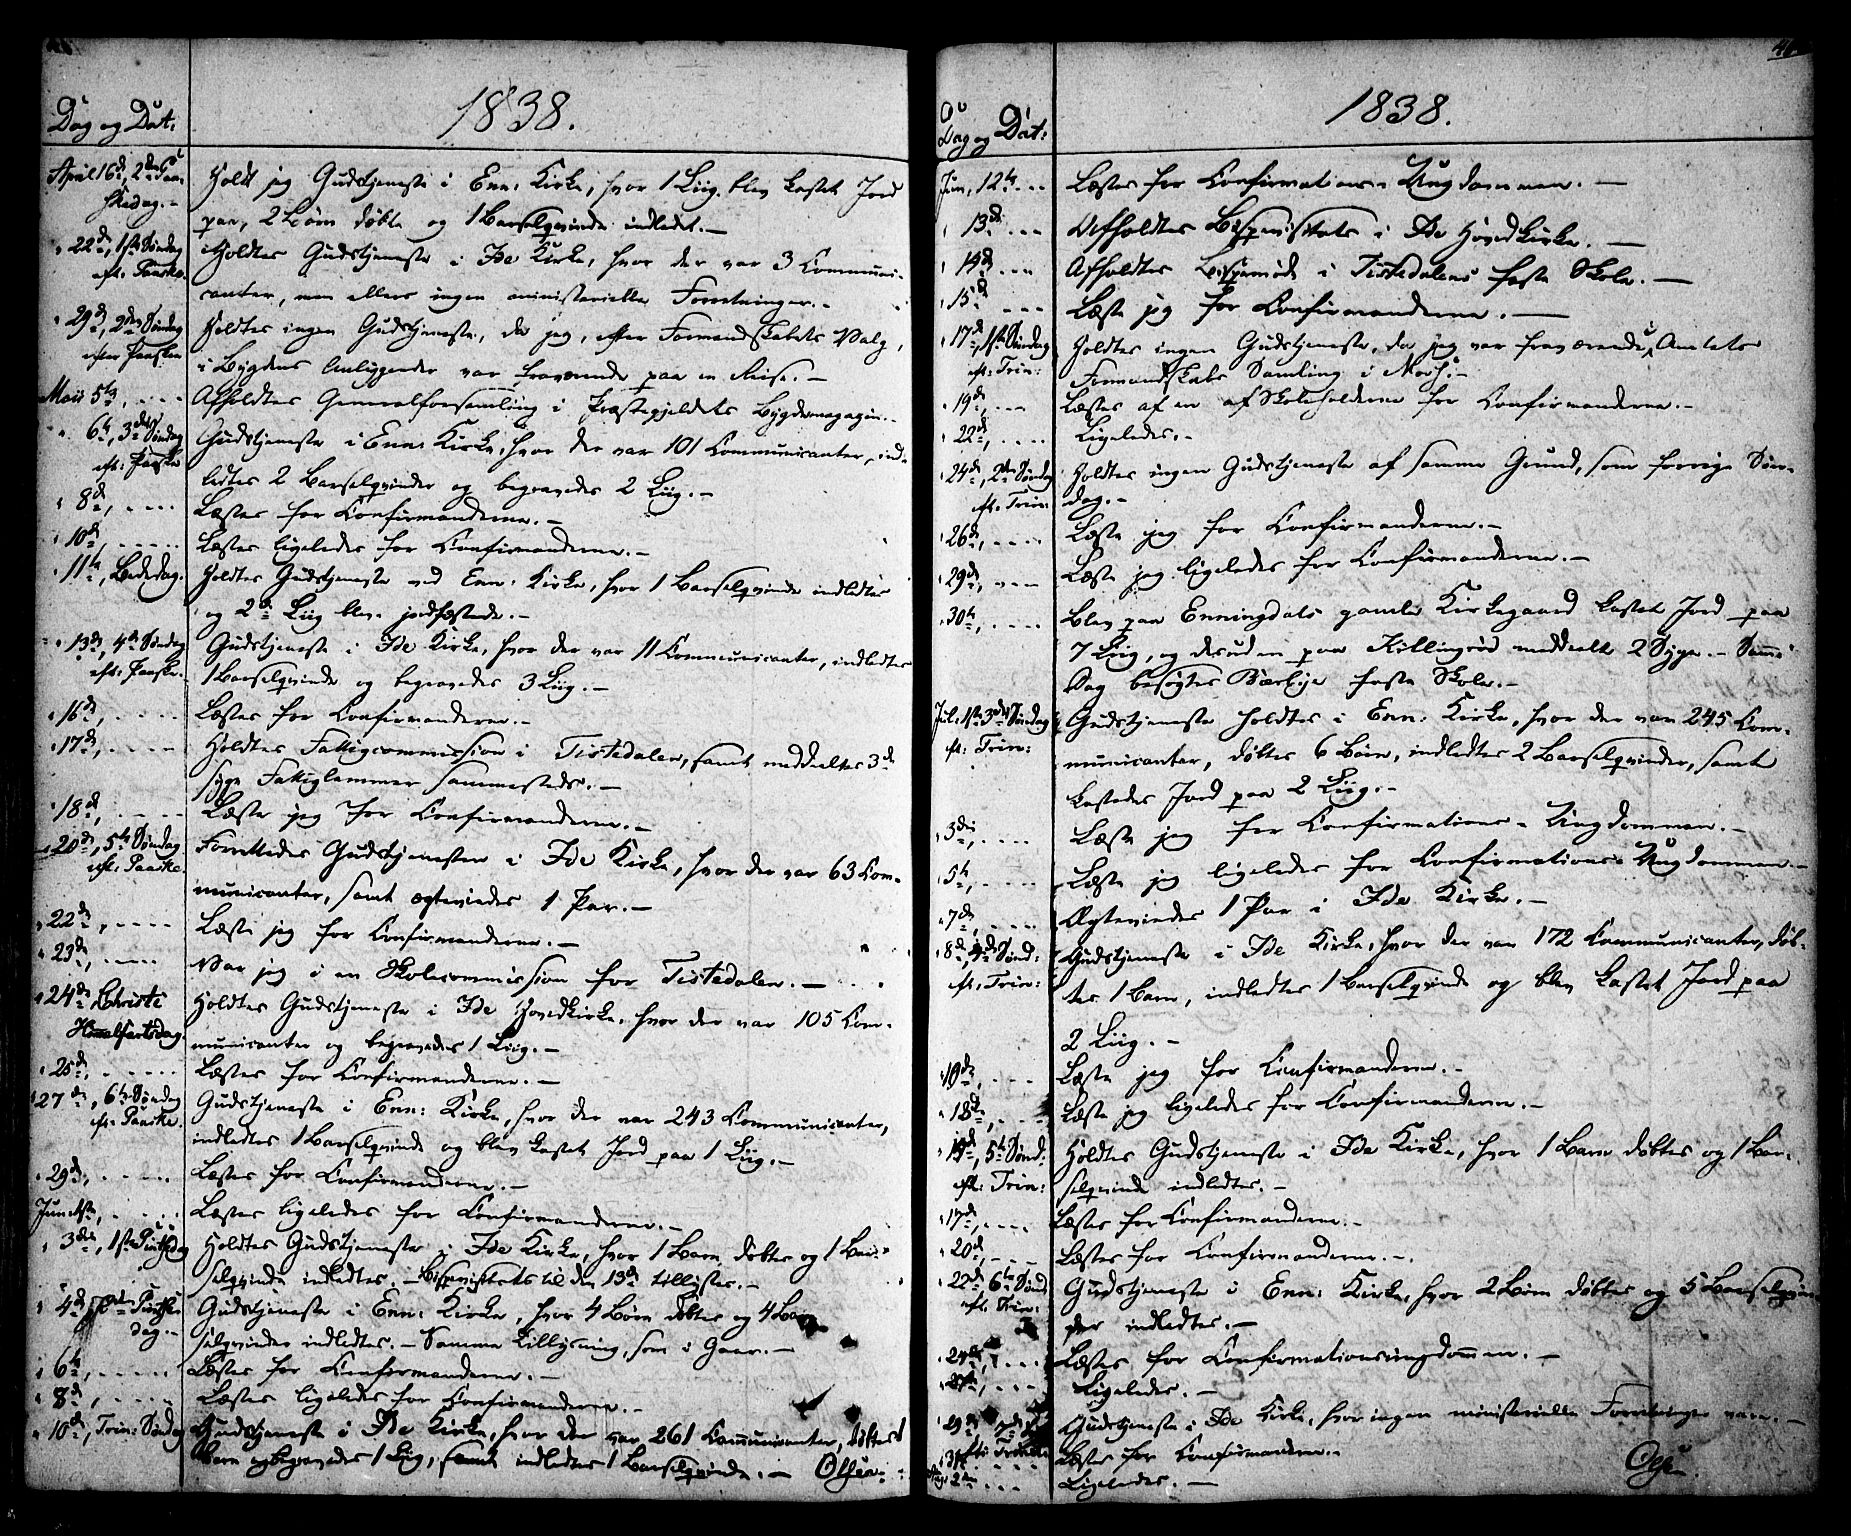 46
Dag og Dat:
1838.
April 16d, 2den Paa-
skedag.-
Holdt jeg Gudstjeneste i Enn: Kirke, hvor 1 Liig blev kastet Jord
paa, 2 Børn døbte og 1 Barselqvinde indledet.-
" 22d, 1ste Søndag
eft: Paaske.
Holdtes Gudstjeneste i Ide Kirke, hvor der var 3 Communi-
canter, men ellers ingen ministerielle Forretninger.-
" 29d, 2den Søndag
efter Paasken
Holdtes ingen Gudstjeneste, da jeg, efter Formandskabets Valg,
i Bygdens Anliggender var fraværende paa en Reise.-
Maii 5te, - - -
Afholdtes Generalforsamling i Præstegjeldets Bygdemagazin.-
" 6te, 3die Søndag
eft: Paaske
Gudstjeneste i Enn: Kirke, hvor der var 101 Communicanter, ind-
ledtes 2 Barselqvinder og begravedes 2 Liig.-
" 8d, - - - -
Læstes for Confirmanderne.-
" 10d, - - - - -
Læstes ligeledes for Confirmanderne.-
" 11te, Bededag.
Holdtes Gudstjeneste ved Enn: Kirke, hvor 1 Barselqvinde indledtes
og 2de Liig blev jordfæstede.-
" 13d, 4de Søndag
eft: Paaske.
Gudstjeneste i Ide Kirke, hvor der var 11 Communicanter, indledtes
1 Barselqvinde og begravedes 3 Liig.-
" 16d, - - - -
Læstes for Confirmanderne.-
" 17d, - - - -
Holdtes Fattigcommission i Tistedalen, samt meddeeltes 3de
syge Fattiglemmer sammesteds.-
" 18d, - - - -
Læste jeg for Confirmanderne.-
" 20d, 5te Søndag
eft: Paaske.
Forrettedes Gudstjenesten i Ide Kirke, hvor der var 63 Com-
municanter, samt ægteviedes 1 Par.-
" 22d, - - - -
Læste jeg for Confirmanderne.-
" 23d, - - - -
Var jeg i en Skolecommission for Tistedalen.-
" 24d, Christi
Himmelfartsdag.
Holdtes Gudstjeneste i Ide Hovedkirke, hvor der var 105 Com-
municanter og begravedes 1 Liig.-
" 25d, - - - - -
Læstes for Confirmanderne.-
" 27d, 6te Søndag
eft: Paaske.
Gudstjeneste i Enn: Kirke, hvor der var 243 Communicanter,
indledtes 1 Barselqvinde og blev kastet Jord paa 1 Liig.-
" 29d, - - - - -
Læstes for Confirmanderne.-
Juni 1ste, - - - -
Læstes ligeledes for Confirmanderne.-
" 3die, 1ste Pintsedag
Holdtes Gudstjeneste i Ide Kirke, hvor 1 Barn døbtes og 1 Bar-
selqvinde indledtes.- Bispevisitats til den 13de tillystes.-
" 4d, 2den Pintse-
dag.-
Gudstjeneste i Enn: Kirke, hvor 4 Børn døbtes og 4 Bar-
selqvinder indledtes.- Samme Tillysning, som i Gaar.-
" 6te, - - - - -
Læstes for Confirmanderne.-
" 8d, - - - - -
Læstes ligeledes for Confirmanderne.-
" 10d, Trin: Søndag
Gudstjeneste i Ide Kirke, hvor der var 261 Communicanter, døbtes 1
Barn og begravedes 1 Liig, samt indledtes 1 Barselqvinde.- Olsen.-
Dag og Dat:
1838.
Jun. 12te - - -
Læstes for Confirmations-Ungdommen.-
" 13d - - -
Afholdtes Bispevisitats i Ide Hovedkirke.-
" 14d - - -
Afholdtes Bispemøde i Tistedalens faste Skole.-
" 15d - - -
Læste jeg for Confirmanderne.-
" 17d, 1ste Søndag
eft: Trin:
Holdtes ingen Gudstjeneste, da jeg var fraværende i Amtets
Formandskabs Samling i Moss.-
" 19d, - - -
Læstes af en af Skoleholderne for Confirmanderne.-
" 22d, - - - -
Ligeledes.-
" 24d, 2den Søndag
eft: Trin:
Holdtes ingen Gudstjeneste af samme Grund, som forrige Søn-
dag.-
" 26d, - - - -
Læste jeg for Confirmanderne.-
" 29d, - - -
Læste jeg ligeledes for Confirmanderne.-
" 30te, - - - -
Blev paa Enningdals gamle Kirkegaard kastet Jord paa
7 Liig, og desuden paa Killingrød meddeelt 2 Syge.- Samme
Dag besøgtes Berbye faste Skole.-
Jul. 1ste 3die Søndag
eft: Trin:
Gudstjeneste holdtes i Enn: Kirke, hvor der var 245 Com-
municanter, døbtes 6 Børn, indledtes 2 Barselqvinder, samt
kastedes Jord paa 2 Liig.-
" 3die, - - - -
Læste jeg for Confirmations-Ungdommen.-
" 5te, - - - -
Læste jeg ligeledes for Confirmations-Ungdommen.-
" 7d, - - - -
Ægteviedes 1 Par i Ide Kirke.-
" 8d, 4de Sønd:
eft: Trin:
Gudstjeneste i Ide Kirke, hvor der var 172 Communicanter, døb-
tes 1 Barn, indledtes 1 Barselqvinde og blev kastet Jord paa
2 Liig.-
" 10d, - - -
Læste jeg for Confirmanderne.-
Læste jeg ligeledes for Confirmanderne.-
5te Sønd:
eft: Trin:
Holdtes Gudstjeneste i Ide Kirke, hvor 1 Barn døbtes og 1 Bar-
selqvinde indledtes.-
" 17d, - - - -
Læstes for Confirmanderne.-
" 20d, - - -
Læstes for Confirmanderne.-
" 22d, 6te Sønd:
eft: Trin:
Gudstjeneste i Enn: Kirke, hvor 2 Børn døbtes og 5 Barselqvin-
der indledtes.-
" 24d, - - -
Læstes for Confirmationsungdommen.-
" 27d, - - -
Ligeledes.-
" 29d, 7de
eft: Trin:
Gudstjeneste i Ide Kirke, hvor ingen ministerielle Forretninger vare.-
" 31te - - -
Læstes for Confirmanderne.-
2den - - -
Ligeledes.-
Olsen